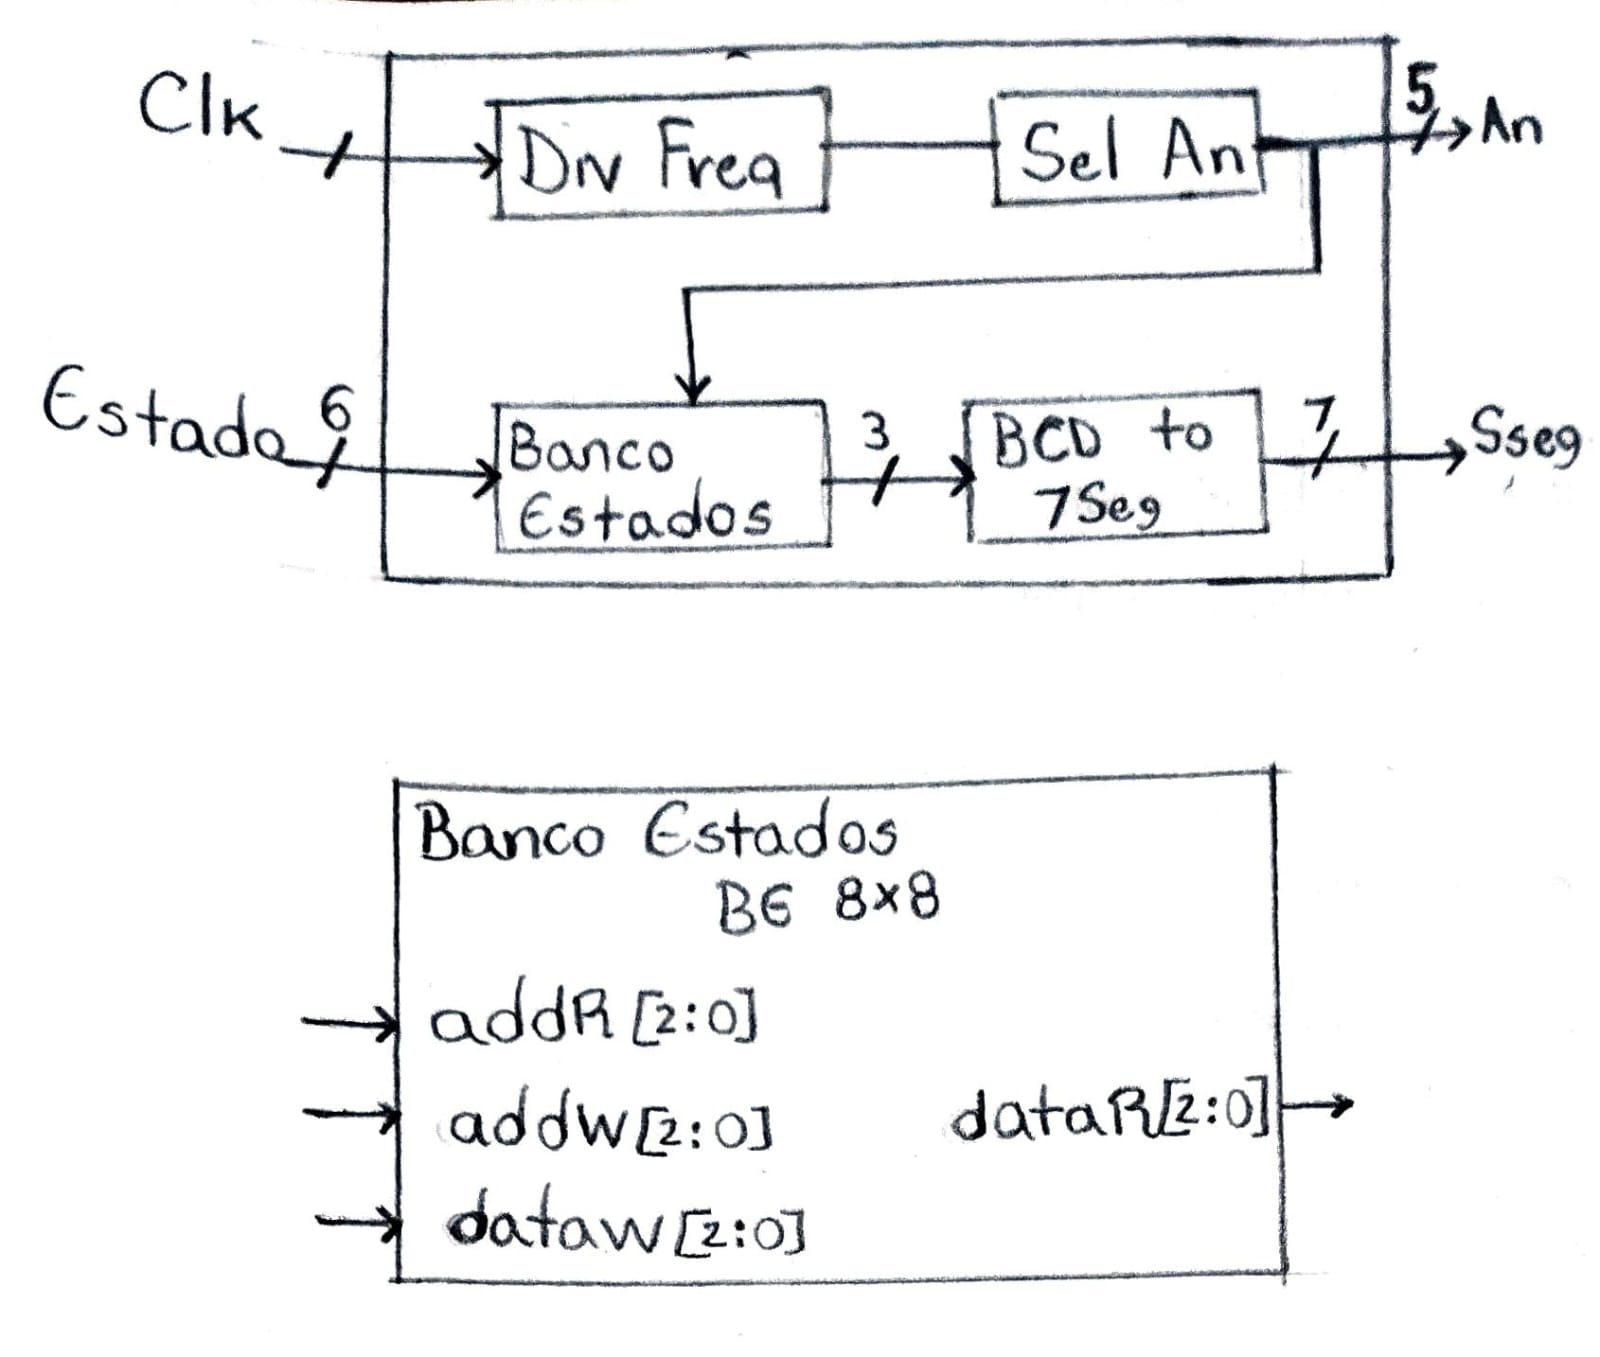 Clk
Div Freq
Sel An
5
An
Estado
6
Banco
Estados
3
BCD to
7Seg
7
Sseg
Banco Estados
BE 8x8
addR [2:0]
addW[2:0]
dataR[2:0]
dataW[2:0]